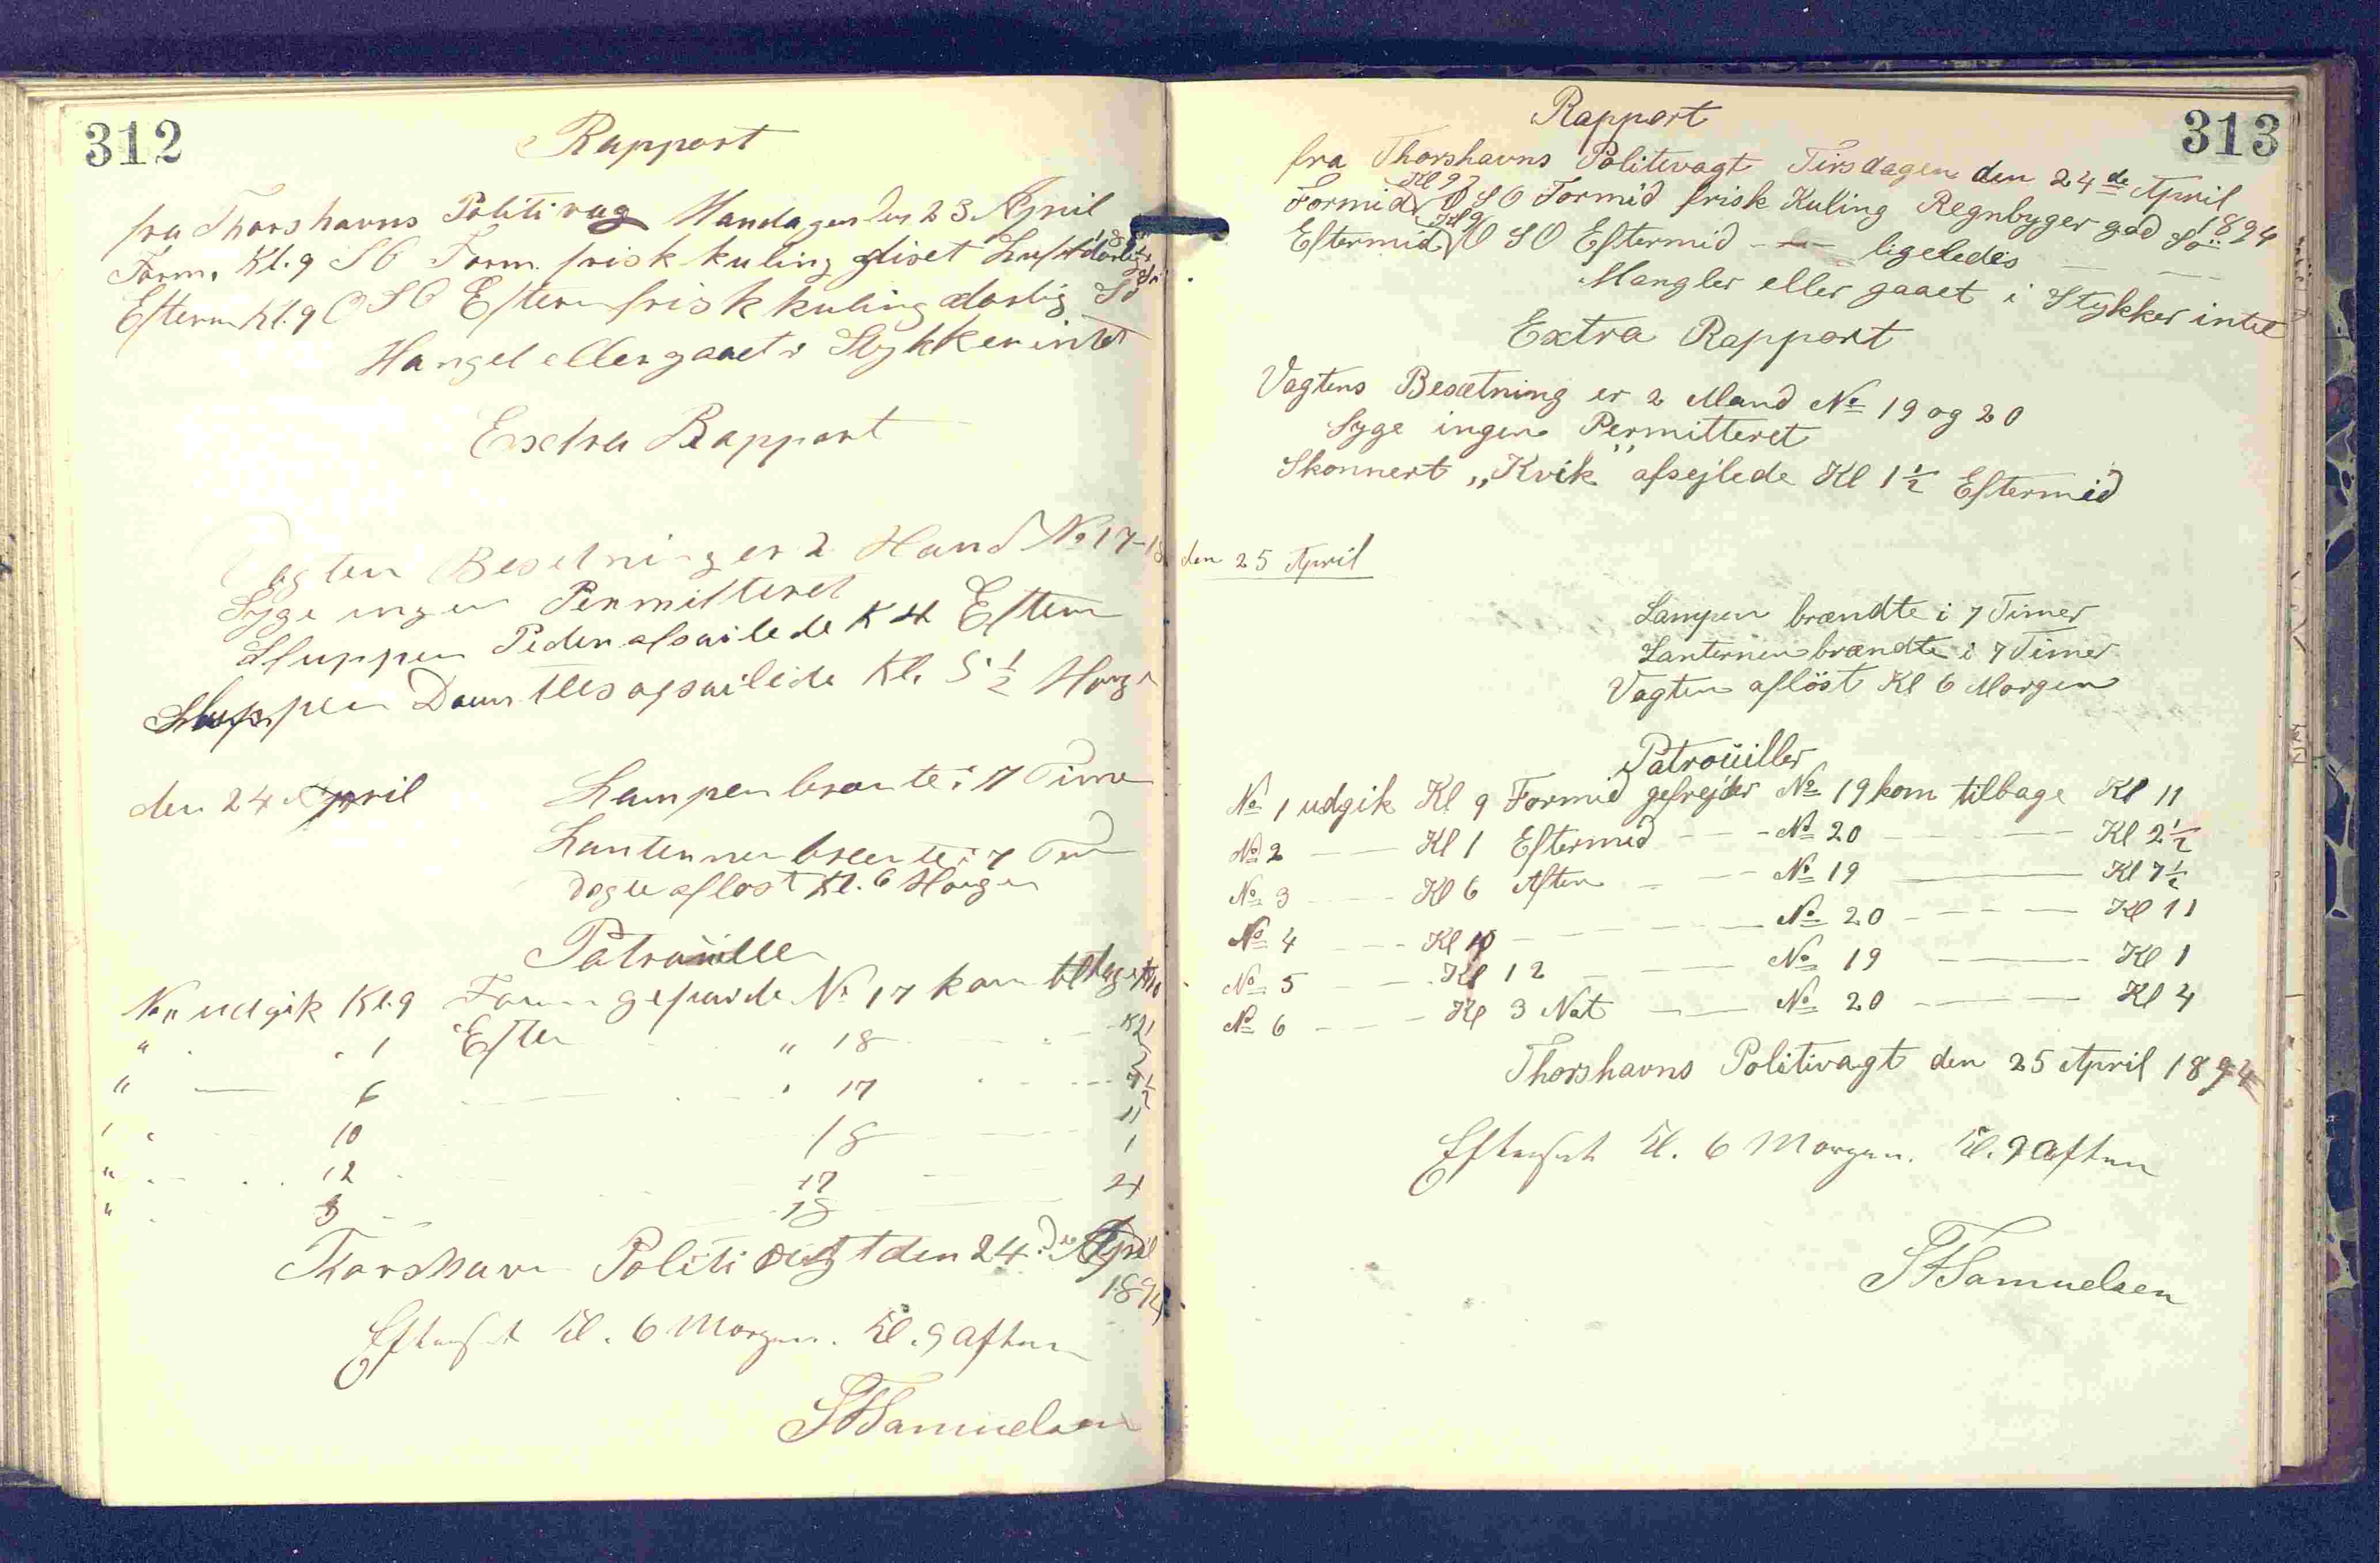 312
Rapport
fra Thorshavns Politivag Mandagen den 23 April
Form. Kl. 9 SO Form. frisk kuling diset Luft dorlig Sö
Efterm Kl. 9 OSO Efterm frisk kuling dorlig Sö
Mangel eller gaaet i Stykker intet
Exstra Rapport
Vagten Besetning er 2 Mand No 17-18
Syge ingen Permitteret
Sluppen Peder afsailede K 4 Efterm
Sluppen afsailede Kl. 5 1/2 Morg
den 24 April
Lampen brante i 7 Time
Lanternen brante i 7 Tim
aflost Kl. 6 Morgen
Patrouille
No 1 udgik Kl. 9 Form No 17 kom
" 1 Efter " 18
" — 6 17 7 1/2
10 18 11
" 12 17 1
" 3 18 4
Thorshavn Politi den 24 de April
1894
Efterset Kl. 6 Morgen. Kl. 9 Aften
Samuelsen
313
Rapport
fra Thorshavns Politivagt Tirsdagen den 24 de April 1894
Formid Kl 9 O SO Formid frisk Kuling Regnbyger god Sö
Eftermid Kl 9 O SO Eftermid — ligeledes — —
Mangler eller gaaet i Stykker intet
Extra Rapport
Vagtens Besætning er 2 Mand No 19 og 20
Syge ingen Permitteret
Skonnert „Kvik" afsejlede Kl 1 1/2 Eftermid
den 25 April
Lampen brændte i 7 Timer
Lanternen brændte i 7 Timer
Vagten aflöst Kl 6 Morgen
Patrouiller
No 1 udgik Kl 9 Formid gefrejder No 19 kom tilbage Kl 11
No 2 — Kl 1 Eftermid — No 20 — Kl 2 1/2
No 3 — Kl 6 Aften — No 19 — Kl 7 1/2
No 4 — Kl 10 — No 20 — Kl 11
No 5 — Kl 12 — No 19 — Kl 1
No 6 — Kl 3 Nat — No 20 — Kl 4
Thorshavns Politivagt den 25 April 1894
Efterset Kl. 6 Morgen. Kl. 9 Aften
Samuelsen